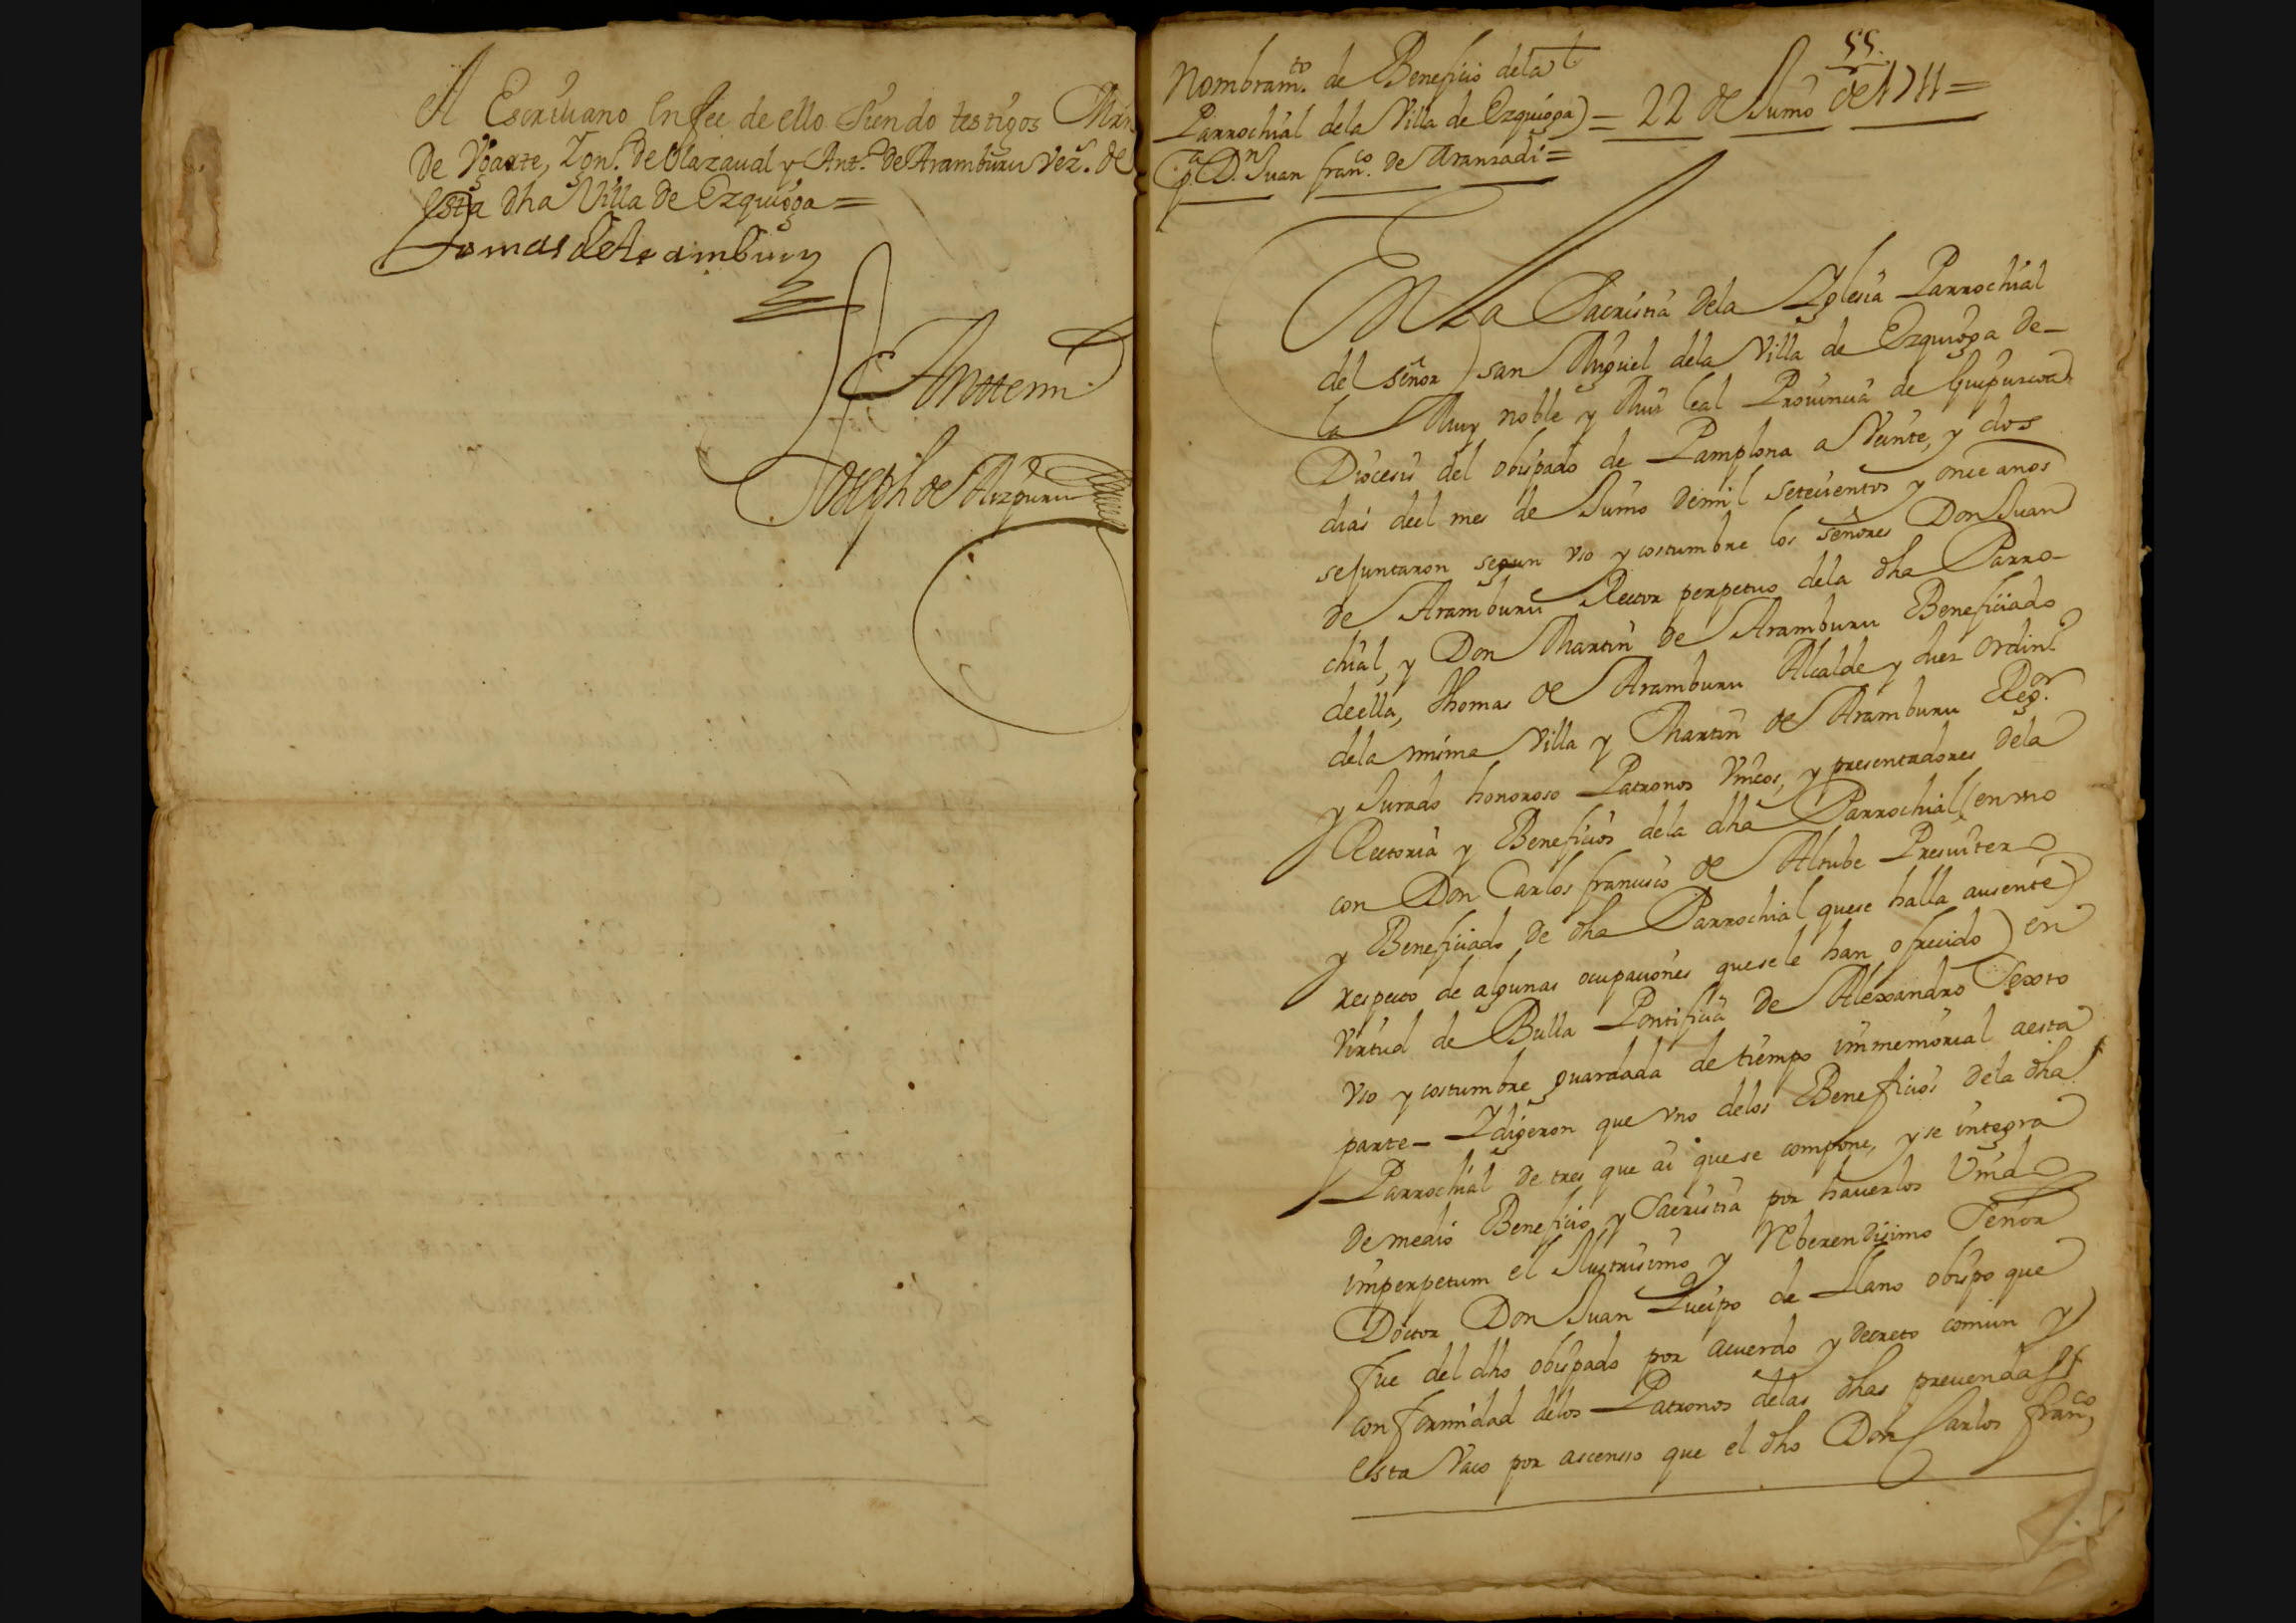 el Escriuano en fee de ello siendo testigos Mrn
de Vgarte, Lon. de Olazaual y Anto. de Aramburu vezs. de
esta dha Villa de Ezquioga =
Tomas de Aramburu
Antemi
Joseph de Aizpuru
55.
Nombramto. de Beneficio dela
Parrochial dela Villa de Ezquioga = 22 de Junio de 1711 =
pa. Dn. Juan franco. de Aranzadi =
En La Sacristia dela Yglesia Parrochial
del señor san Miguel dela Villa de Ezquioga de-
la Muy noble y Mui leal Prouincia de Guipuzcoa
Diocesis del obispado de Pamplona a Veinte, y dos
dias deel mes de Junio demil setecientos y once anos
sejuntaron segun vso y costumbre los señores Don Juan
de Aramburu Rector perpetuo dela dha Parro-
chial, y Don Martin de Aramburu Beneficiado
deella, Thomas de Aramburu Alcalde y Juez ordino.
dela misma Villa y Martin de Aramburu Regor.
y Jurado honoroso Patronos Vnicos, y presentadores dela
Rectoria y Beneficios dela dha Parrochial (en vno
con Don Carlos francisco de Altube Presuitero
y Beneficiado de dha Parrochial quese halla ausente
respecto de algunas ocupaciones quesele han ofrecido) en
virtud de Bulla Pontificia de Alexandro Sexto
vso y costumbre guardada de tiempo immemorial aesta
parte- Ydigeron que vno delos Beneficios dela dha
Parrochial de tres que ai quese compone, y se integra
de medio Beneficio, y Sacristia por hauerlos Vnido
imperpetum el Ilustrisimo y Reberendisimo Señor
Doctor Don Juan Queipo de Llano obispo que
fue del dho obispado por acuerdo y decreto comun y
conformidad delos Patronos delas dhas preuendas
esta Vaco por ascenso que el dho Don Carlos franco.